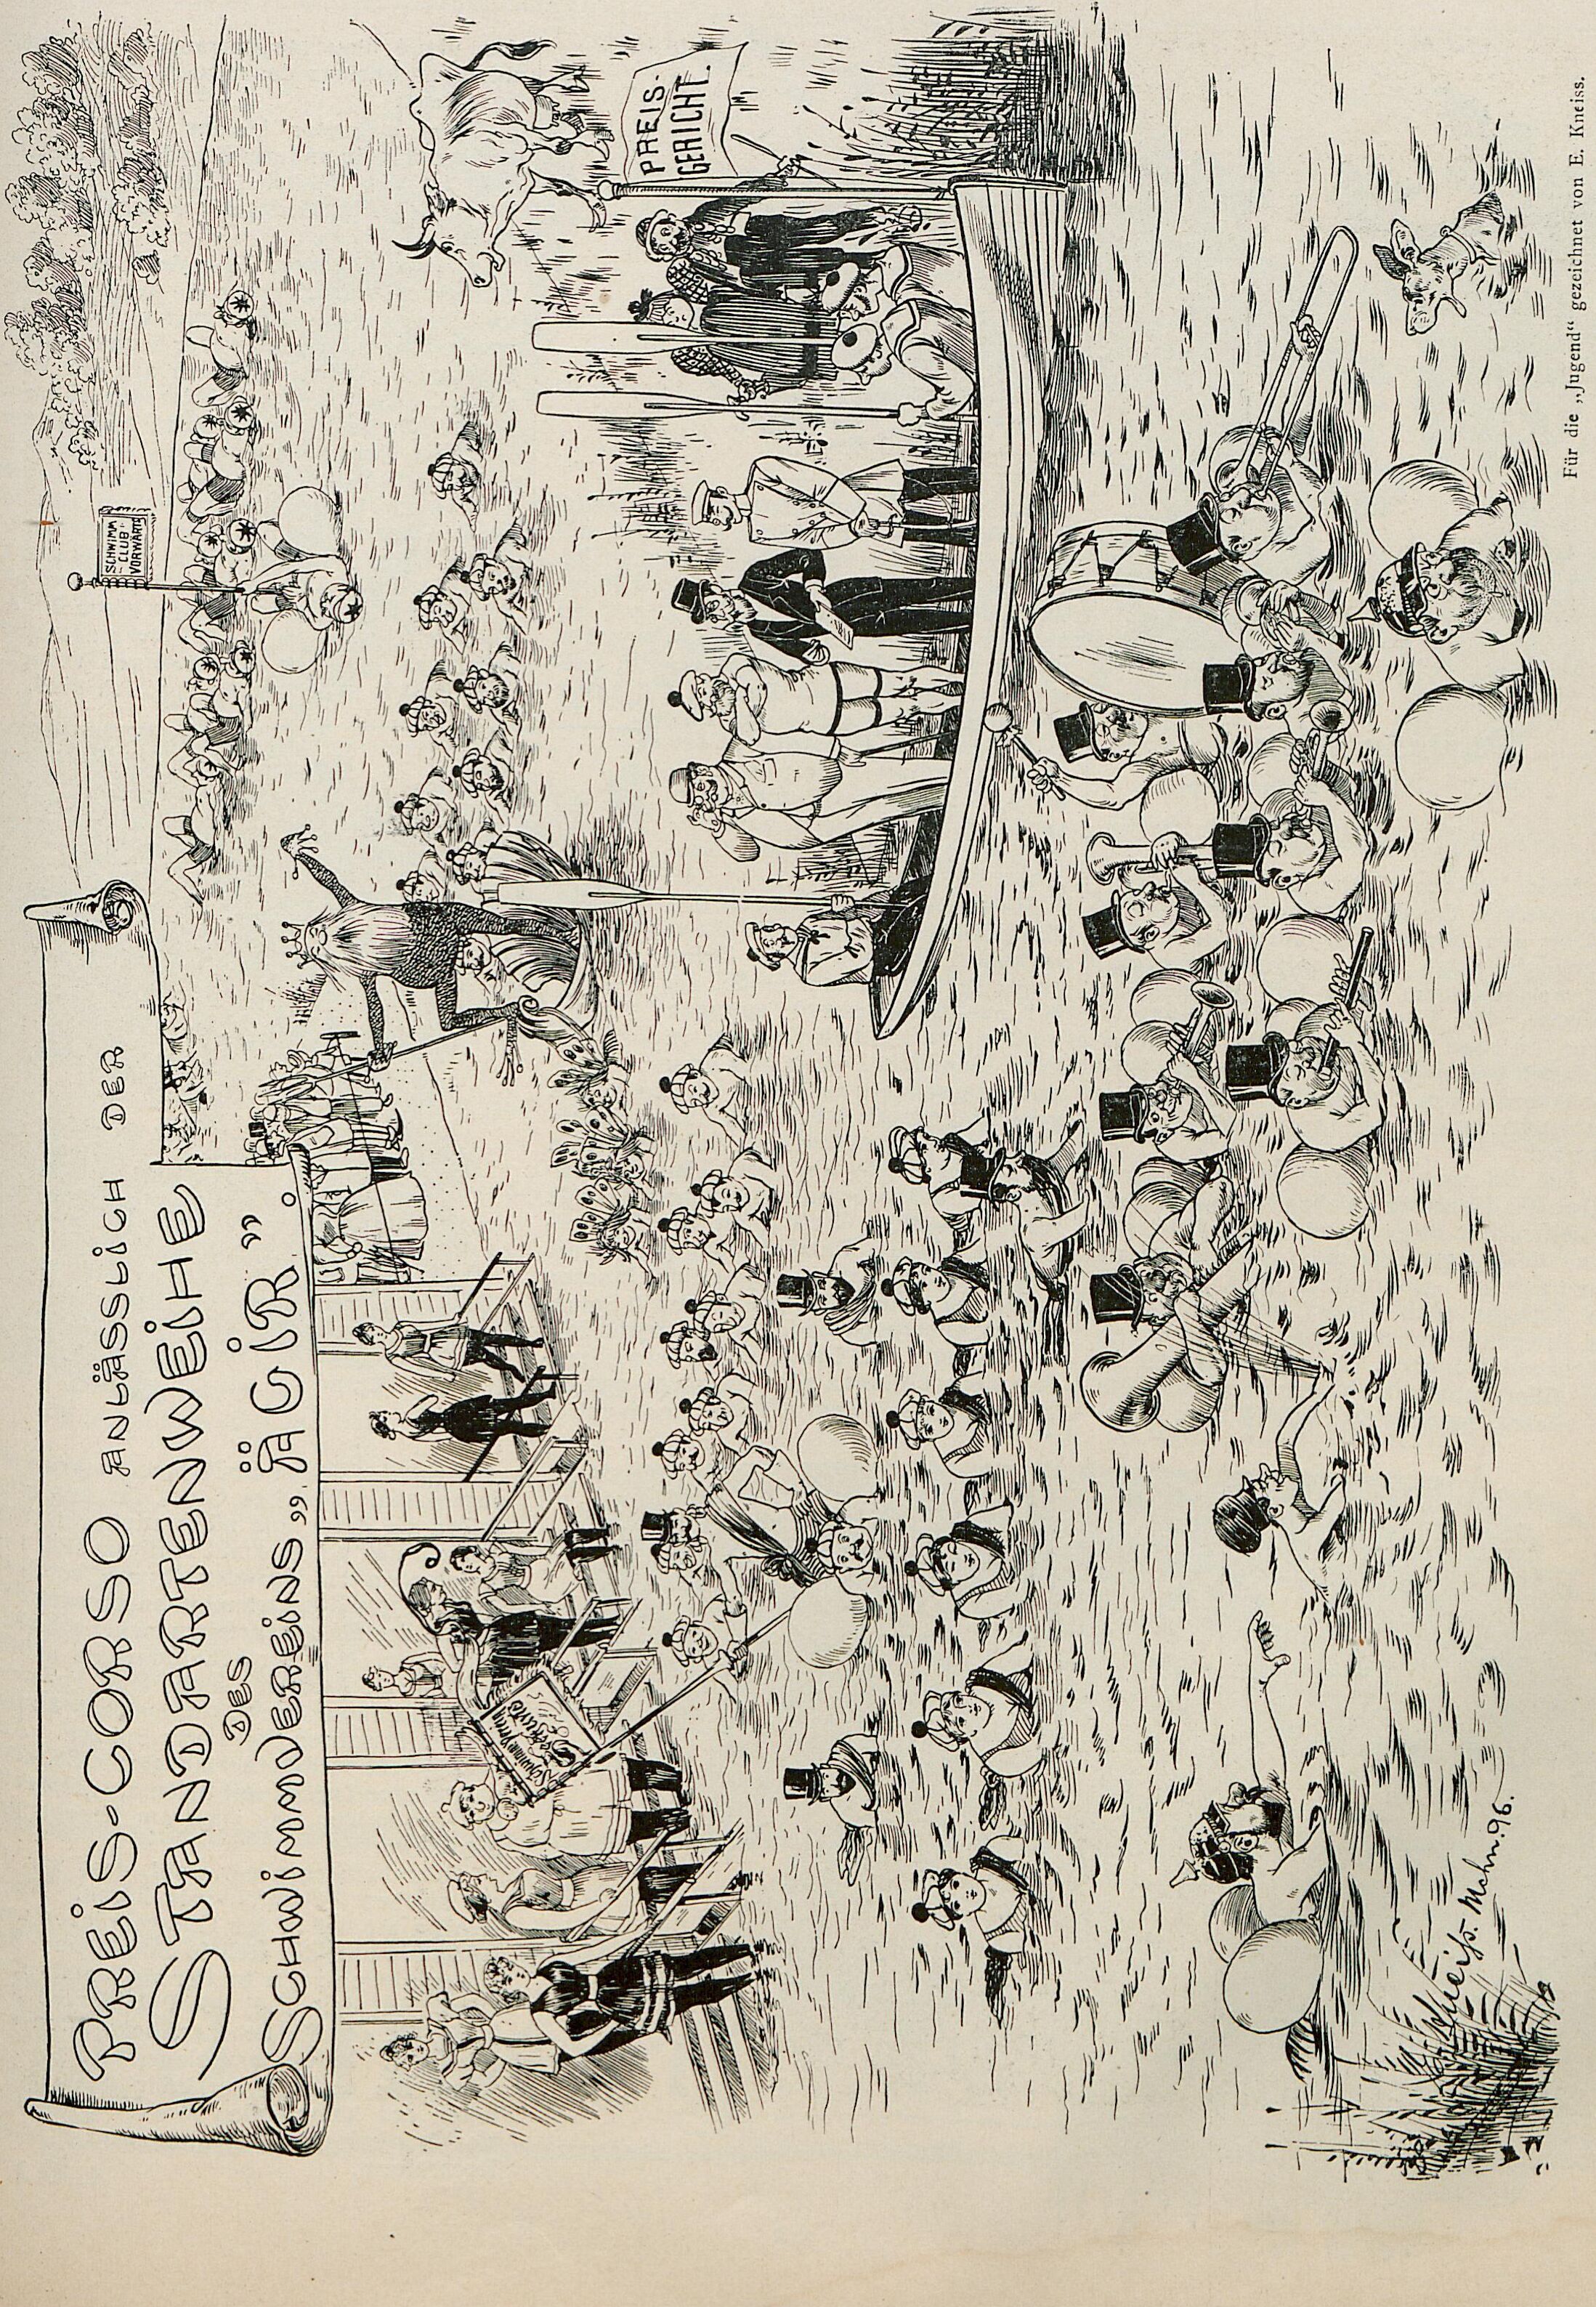 PREIS-CORSO ANLÄSSLICH DER
STANDARTENWEIHE
DES
SCHWIMMVEREINS „ÄGIR”.
SCHWIMM
CLUB
VORWÄRTS
PREIS-
GERICHT.
Für die „Jugend“ gezeichnet von E. Kneiss.